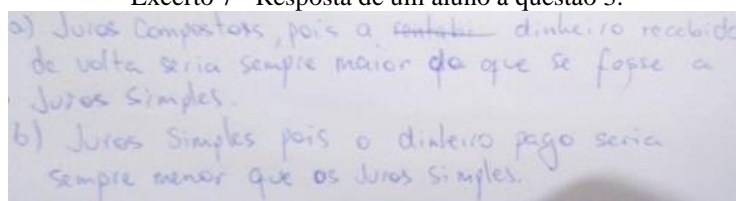 Excerto 7 - Resposta de um aluno à questão 3.
a) Juros Compostors, pois a rentabi dinheiro recebido
de volta seria sempre maior do que se fosse a
Juros Simples.
b) Juros Simples pois o dinheiro pago seria
sempre menor que os Juros Simples.